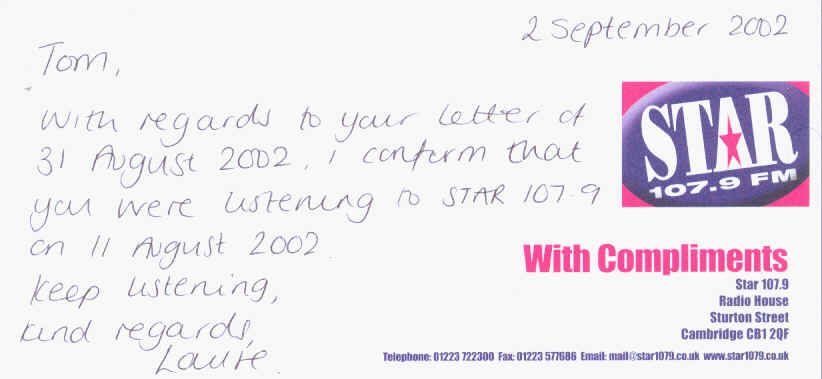 2 September 2002
Tom,
With regards to your letter of
31 August 2002, I confirm that
you were listening to STAR 107.9
on 11 August 2002.
Keep listening,
Kind regards,
Laurie.
STAR
107.9 FM
With Compliments
Star 107.9
Radio House
Sturton Street
Cambridge CB1 2QF
Telephone: 01223 722300 Fax: 01223 577686 Email: mail@star1079.co.uk www.star1079.co.uk